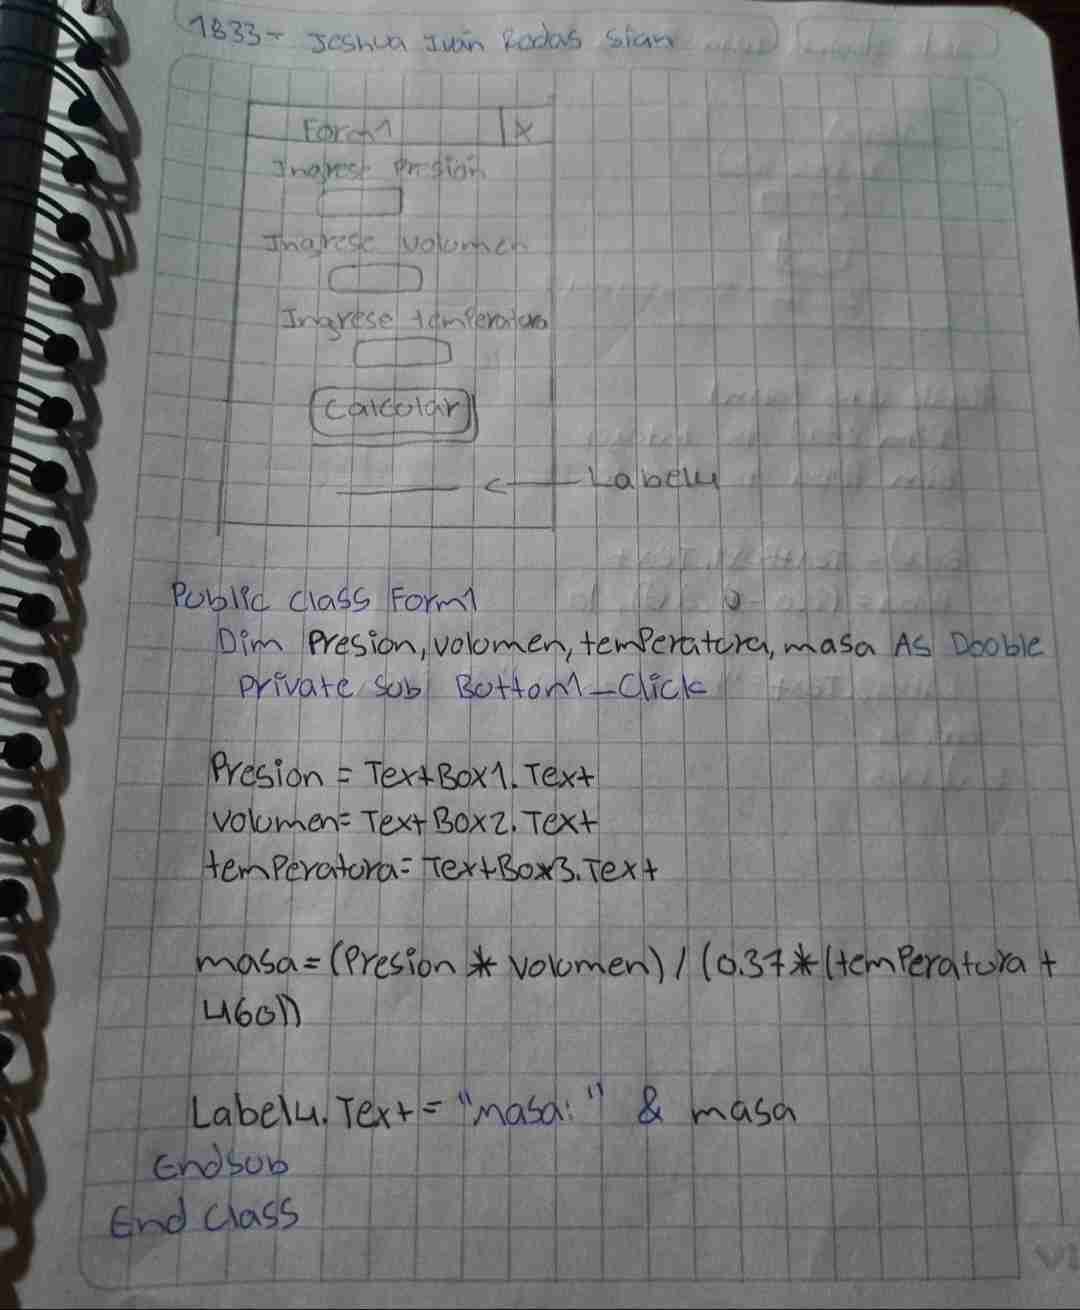 1833- Joshua Iván Rodas Sian
Form1 X
Ingrese Presión
Ingrese volumen
Ingrese temperatura
Calcular
Label4
Public class Form1
Dim Presion, volumen, temperatura, masa As Dooble
Private Sub Bottom1_Click
Presion = TextBox1.Text
volumen= TextBox2.Text
temperatura= TextBox3.Text
masa = (Presion * volumen) / (0.37 * (temperatura +
460))
Label4.Text = "masa: " & masa
Endsub
End Class